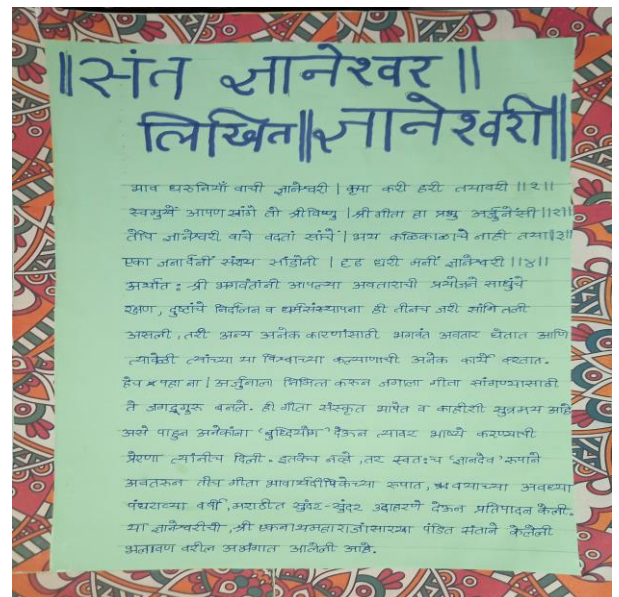 ॥संत ज्ञानेश्वर॥
लिखित॥ज्ञानेश्वरी॥
भाव धरुनियाँ वाची ज्ञानेश्वरी | कृपा करी हरी तयावरी ॥१॥
स्वमुखें आपण सांगे तो श्रीविष्णु | श्रीगीता हा प्रश्नु अर्जुनेंसी ॥२॥
तेचि ज्ञानेश्वरी वाचे वदतां साचें | भय कळिकाळाचे नाही तया॥३॥
एका जनार्दनीं संशय सांडोनी | दृढ धरी मनीं ज्ञानेश्वरी ॥४॥
अर्थात : श्री भगवंतांनी आपल्या अवताराची प्रयोजने साधुंचे
रक्षण, दुष्टांचे निर्दालन व धर्मसंस्थापना ही तीनच जरी सांगितली
असली, तरी अन्य अनेक कारणांसाठी भगवंत अवतार घेतात आणि
त्यावेळी त्यांच्या या विश्वाच्या कल्याणाची अनेक कार्ये करतात.
हेच पहा ना | अर्जुनाला निमित्त करुन जगाला गीता सांगण्यासाठी
ते जगद्गुरू बनले. ही गीता संस्कृत भाषेत व काहीशी सुत्रमय आहे
असे पाहुन अनेकांना 'बुध्दियोग' देऊन त्यावर भाष्ये करण्याची
प्रेरणा त्यांनीच दिली. इतकेच नव्हे, तर स्वतःच 'ज्ञानदेव' रूपाने
अवतरुन तीच गीता भावार्थदीपिकेच्या रूपात, वयाच्या अवघ्या
पंधराव्या वर्षी, मराठीत सुंदर-सुंदर उदाहरणे देऊन प्रतिपादन केली.
या ज्ञानेश्वरीची, श्री एकनाथमहाराजांसारख्या पंडित संताने केलेली
भलावण वरील अभंगात आलेली आहे.